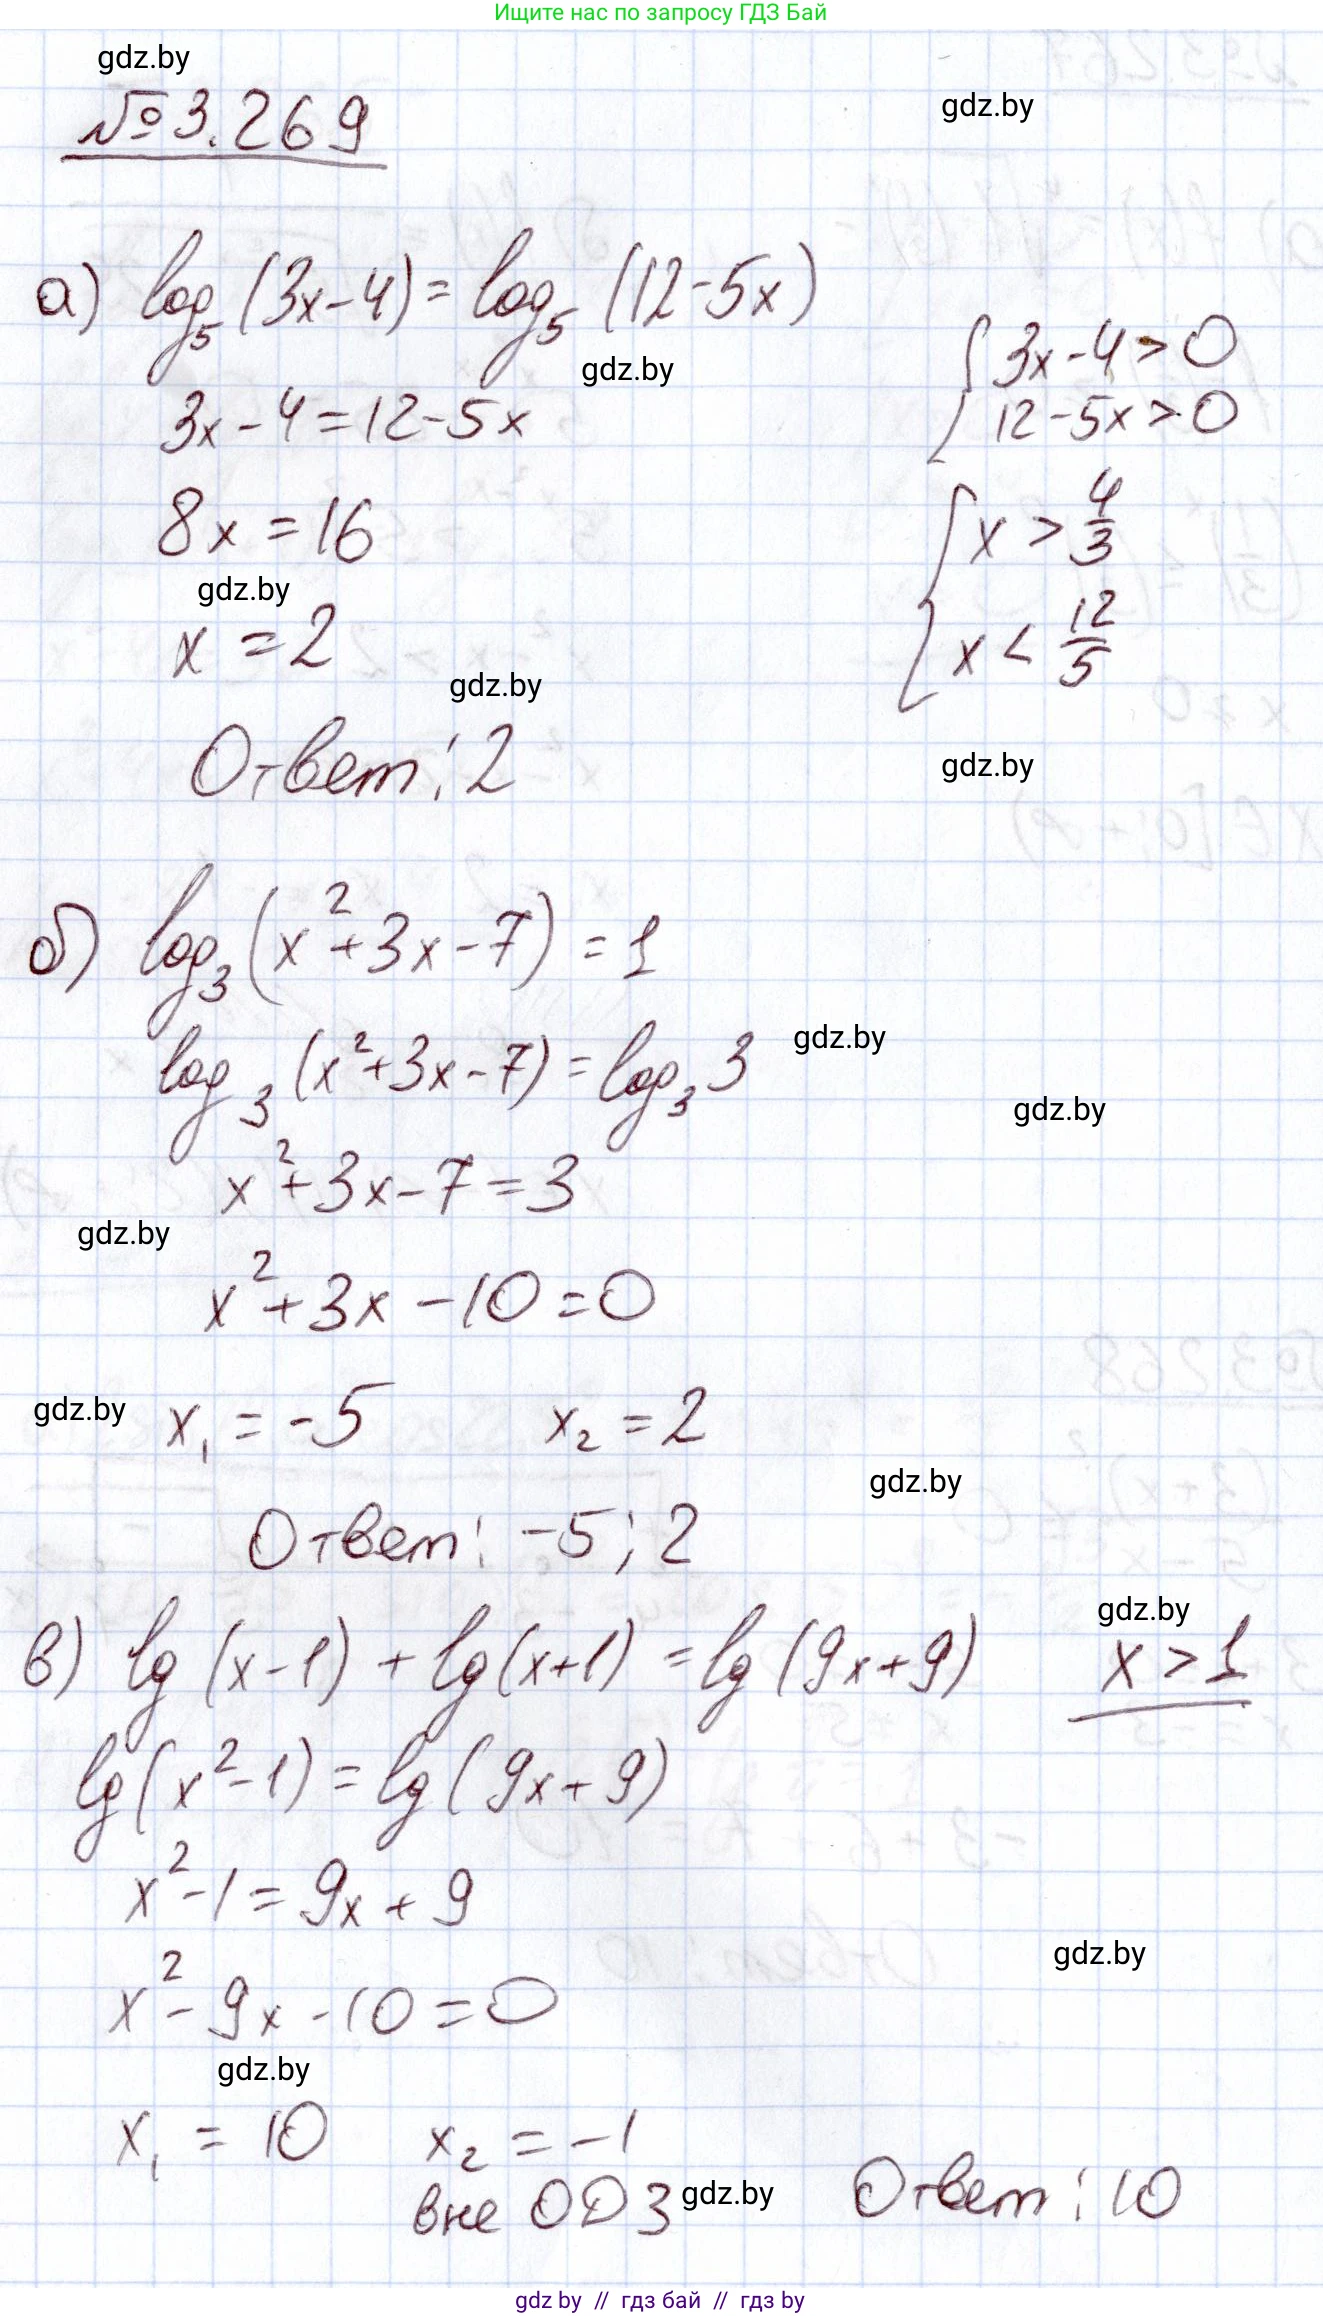 Ищите нас по запросу ГДЗ Бай
gdz.by
№3.269
gdz.by
а) log₅(3x-4)=log₅(12-5x)
gdz.by
3x-4>0
12-5x>0
3x-4=12-5x
8x=16
x > 4/3
gdz.by
x=2
x < 12/5
gdz.by
Ответ: 2
gdz.by
б) log₃(x²+3x-7)=1
log₃(x²+3x-7)=log₃3
gdz.by
gdz.by
x²+3x-7=3
gdz.by
x²+3x-10=0
gdz.by
x₁=-5 x₂=2
gdz.by
Ответ: -5; 2
gdz.by
в) lg(x-1)+lg(x+1)=lg(9x+9) x>1
lg(x²-1)=lg(9x+9)
x²-1=9x+9
gdz.by
x²-9x-10=0
gdz.by
x₁=10 x₂=-1
вне ОДЗ gdz.by Ответ: 10
gdz by // гдз бай // гдз by